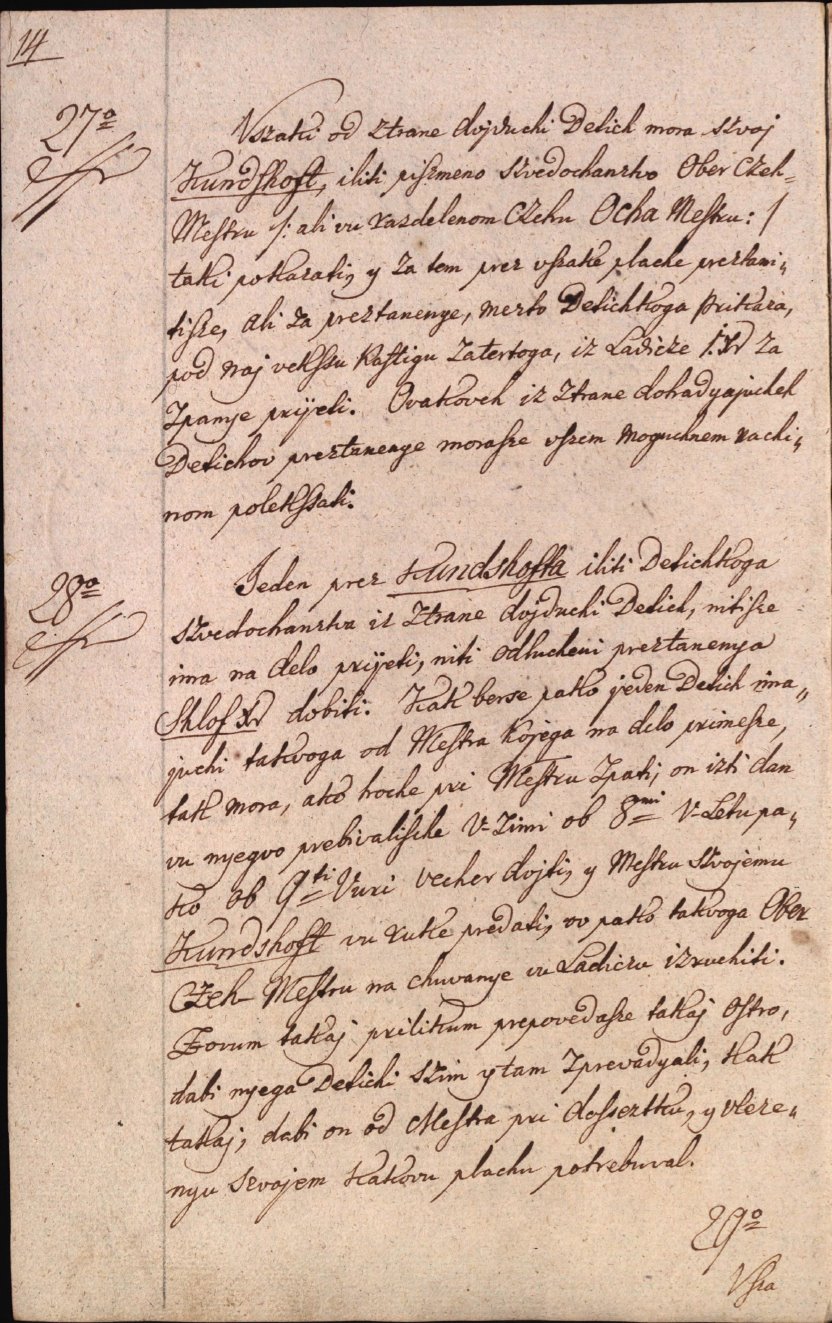 14
27º
Vszaki od ztrane dojduchi Detich mora szvoj
Kundshoft, iliti piszmeno szvedochanztvo Ober Czeh-
Mestru /: ali vu razdelenom Czehu Ocha Mestru: /
taki pokazati, y za tem prez vszake plache preztavi-
tisze, ali za preztanenye, mezto Detichkoga Prikaza,
pod naj vekssu Kastigu zatertoga, iz Ladicze 1. xr za
zpanye prijeti. Ovakoveh iz ztrane dohadyajucheh
Detichov preztanenye morasze vszem moguchnem nachi-
nom polekssati.
28º
Jeden prez Kundshofta iliti Detichkoga
szvedochanztva iz ztrane dojduchi Detich, nitisze
ima na delo prijeti, niti odlucheni preztanenya
Shlof xr dobiti. Kak berse pako jeden Detich ima-
juchi takvoga od Mestra kojega na delo primesze,
tak mora, ako hoche pri Mestru zpati, on izti dan
vu nyegvo prebivalische V-Zimi ob 8mi V-Letu pa-
ko ob 9ti Vuri vecher dojti, y Mestru szvojemu
Kundshoft vu ruke predati, ov pako takvoga Ober
Czeh Mestru na chuvanye vu Ladiczu izruchiti.
Zorum takaj prilikum prepovedasze takaj ostro,
dabi nyega Detichi szim y tam zprevadyali, kak
takaj, dabi on od Mestra pri dosseztku, y vleze-
nyu szvojem kakovu plachu potrebuval.
29º
Vsza